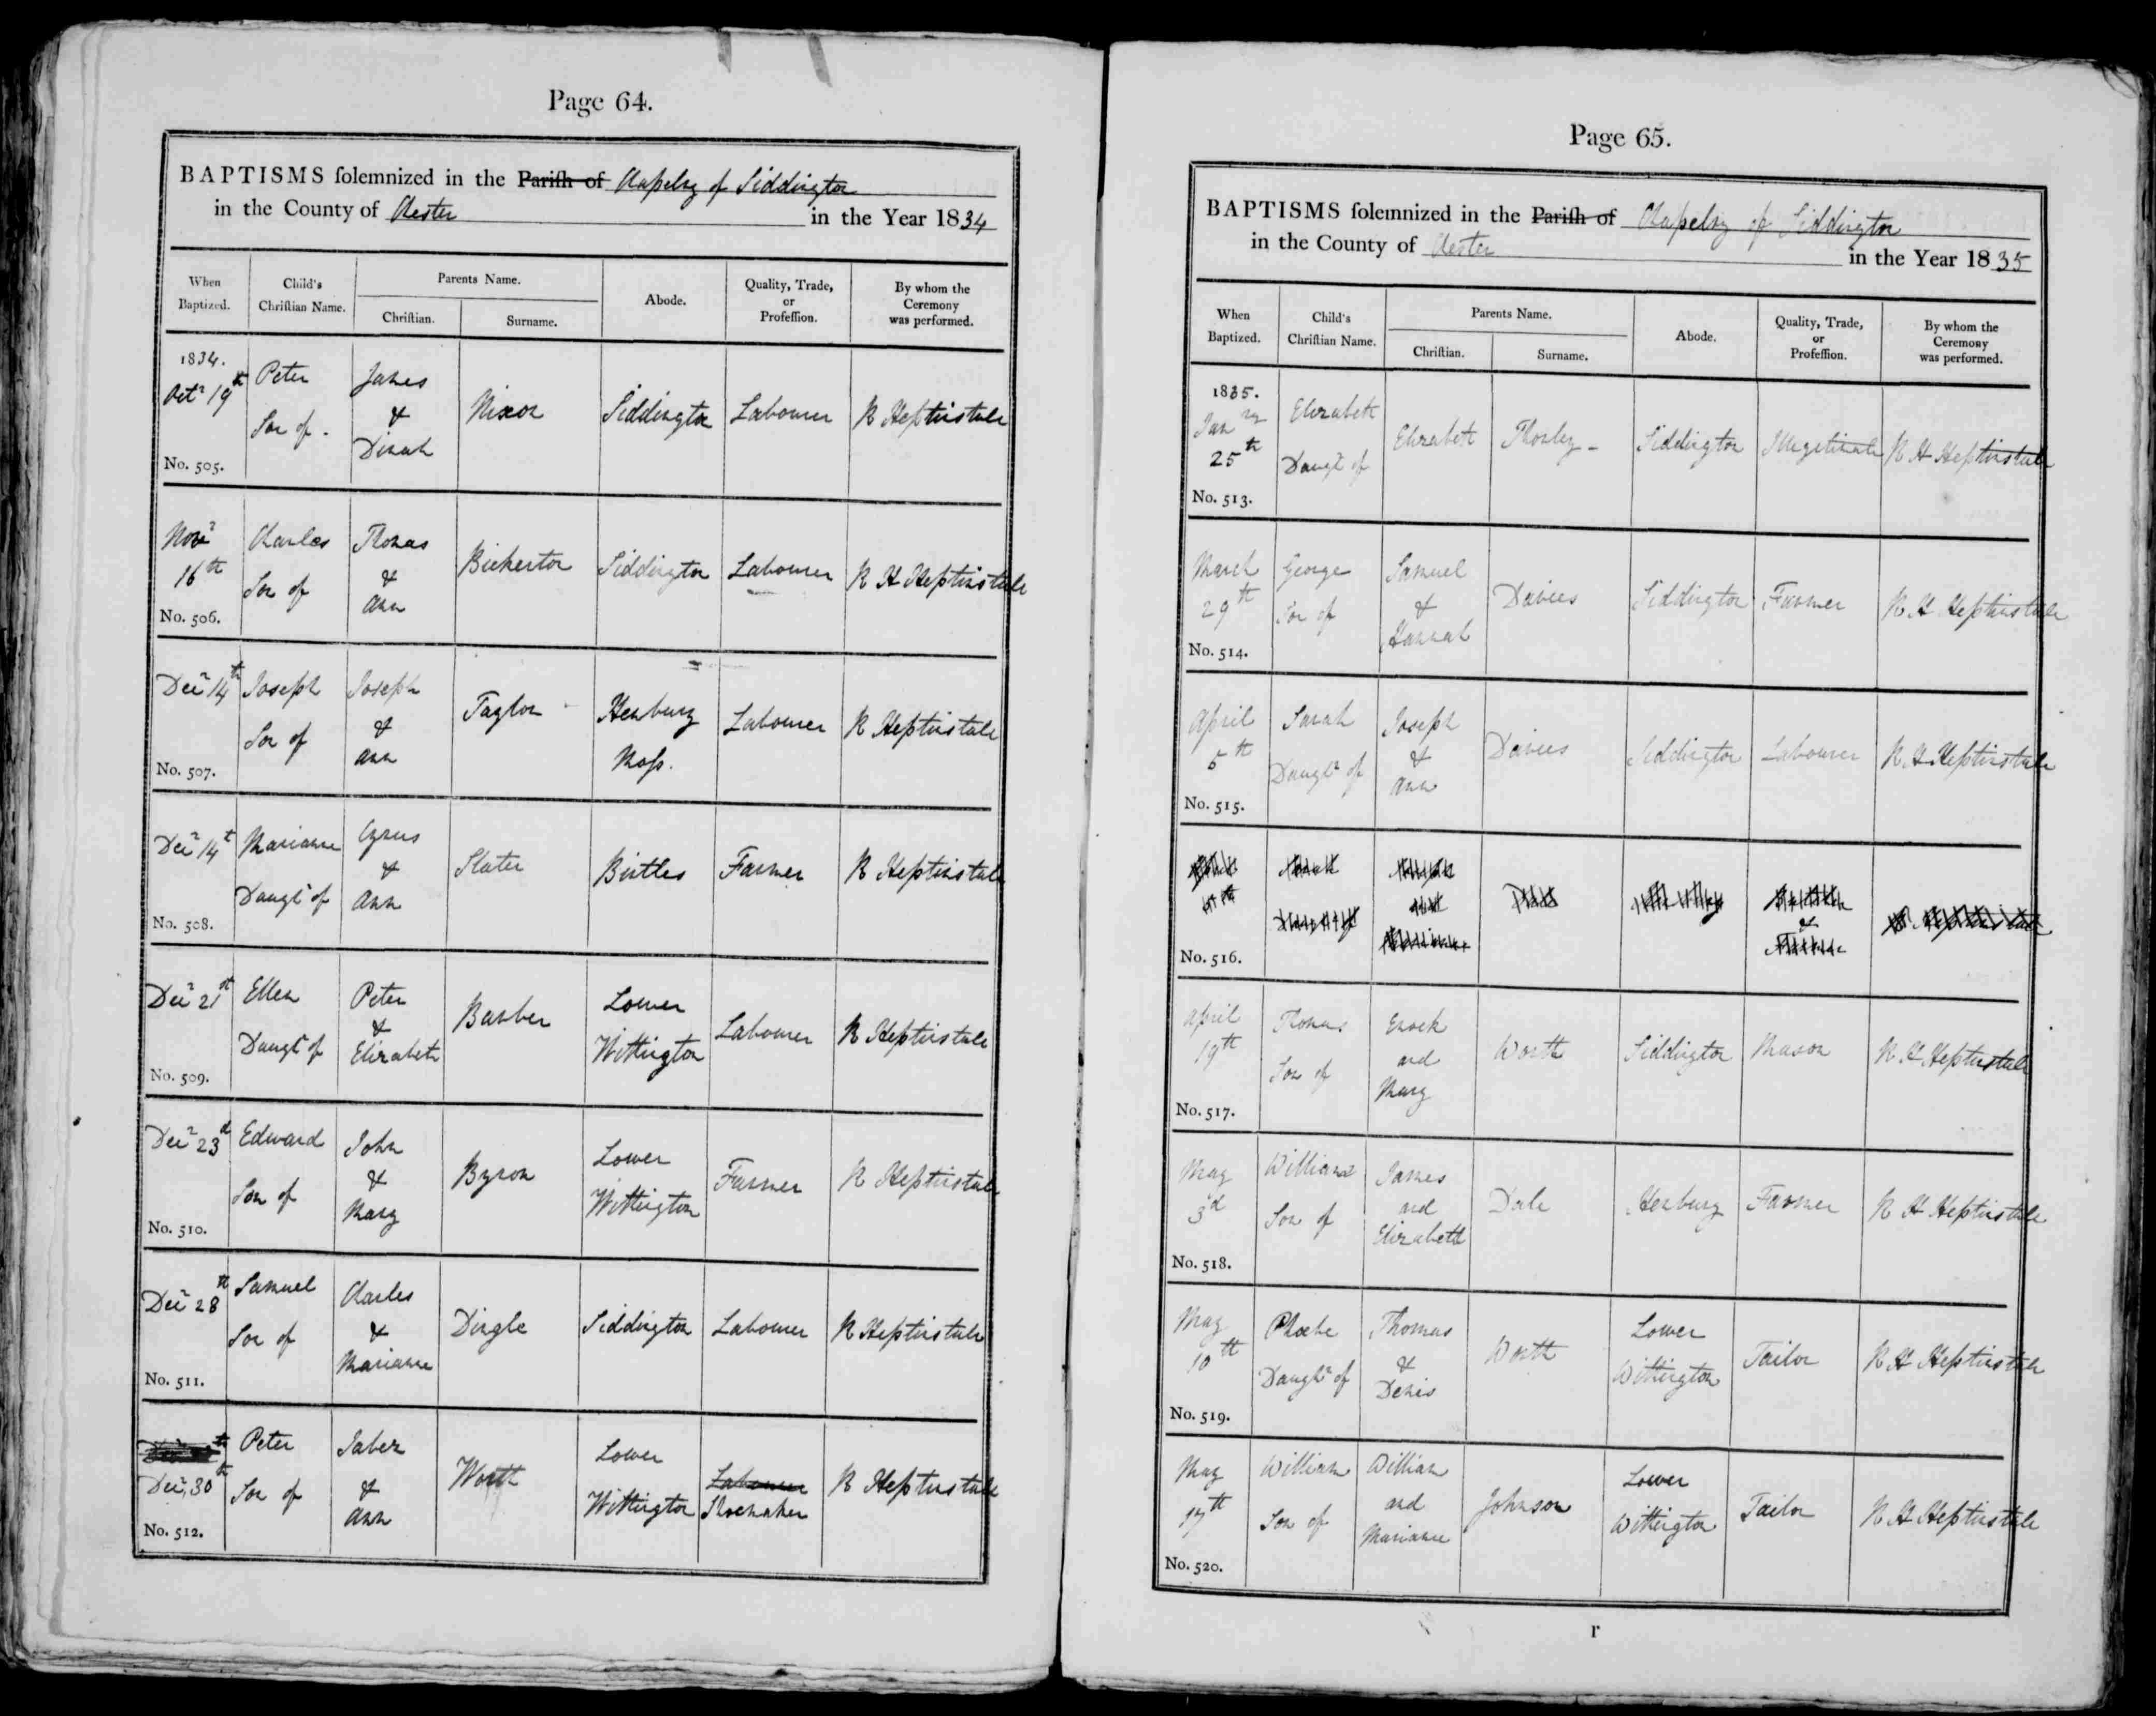 Page 64.
BAPTISMS solemnized in the Parish of Chapelry of Siddington
in the County of Chester in the Year 1834
When Baptized. Child's Christian Name. Parents Name. Christian. Surname. Abode. Quality, Trade, or Profession. By whom the Ceremony was performed.
1834.
Octr 19th Peter Son of. James & Dinah Nixon Siddington Labourer R Heptinstall
No. 505.
Novr 16th Charles Son of Thomas & Ann Bickerton Siddington Labourer R H Heptinstall
No. 506.
Decr 14th Joseph Son of Joseph & Ann Taylor Henbury Moss. Labourer R Heptinstall
No. 507.
Decr 14th Marianne Daugtr of Cyrus & Ann Slater Birtles Farmer R Heptinstall
No. 508.
Decr 21st Ellen Daugtr of Peter & Elizabeth Barber Lower Withington Labourer R Heptinstall
No. 509.
Decr 23d Edward Son of John & Mary Byron Lower Withington Farmer R Heptinstall
No. 510.
Decr 28th Samuel Son of Charles & Marianne Dingle Siddington Labourer R Heptinstall
No. 511.
Decr 30th Peter Son of Jabez & Ann Worth Lower Withington Labourer Shoemaker R Heptinstall
No. 512.
Page 65.
BAPTISMS solemnized in the Parish of Chapelry of Siddington
in the County of Chester in the Year 1835
When Baptized. Child's Christian Name. Parents Name. Christian. Surname. Abode. Quality, Trade, or Profession. By whom the Ceremony was performed.
1835.
Jany 25th Elizabeth Daugtr of Elizabeth Thorley - Siddington Illegitimate R H Heptinstall
No. 513.
March 29th George Son of Samuel & Hannah Davies Siddington Farmer R H Heptinstall
No. 514.
April 5th Sarah Daughtr of Joseph & Ann Davies Siddington Labourer R H Heptinstall
No. 515.
No. 516.
April 19th Thomas Son of Enoch and Mary Worth Siddington Mason R H Heptinstall
No. 517.
May 3d William Son of James and Elizabeth Dale Henbury Farmer R H Heptinstall
No. 518.
May 10th Phoebe Daughtr of Thomas & Denis Worth Lower Withington Tailor R H Heptinstall
No. 519.
May 17th William Son of William and Marianne Johnson Lower Withington Tailor R H Heptinstall
No. 520.
r